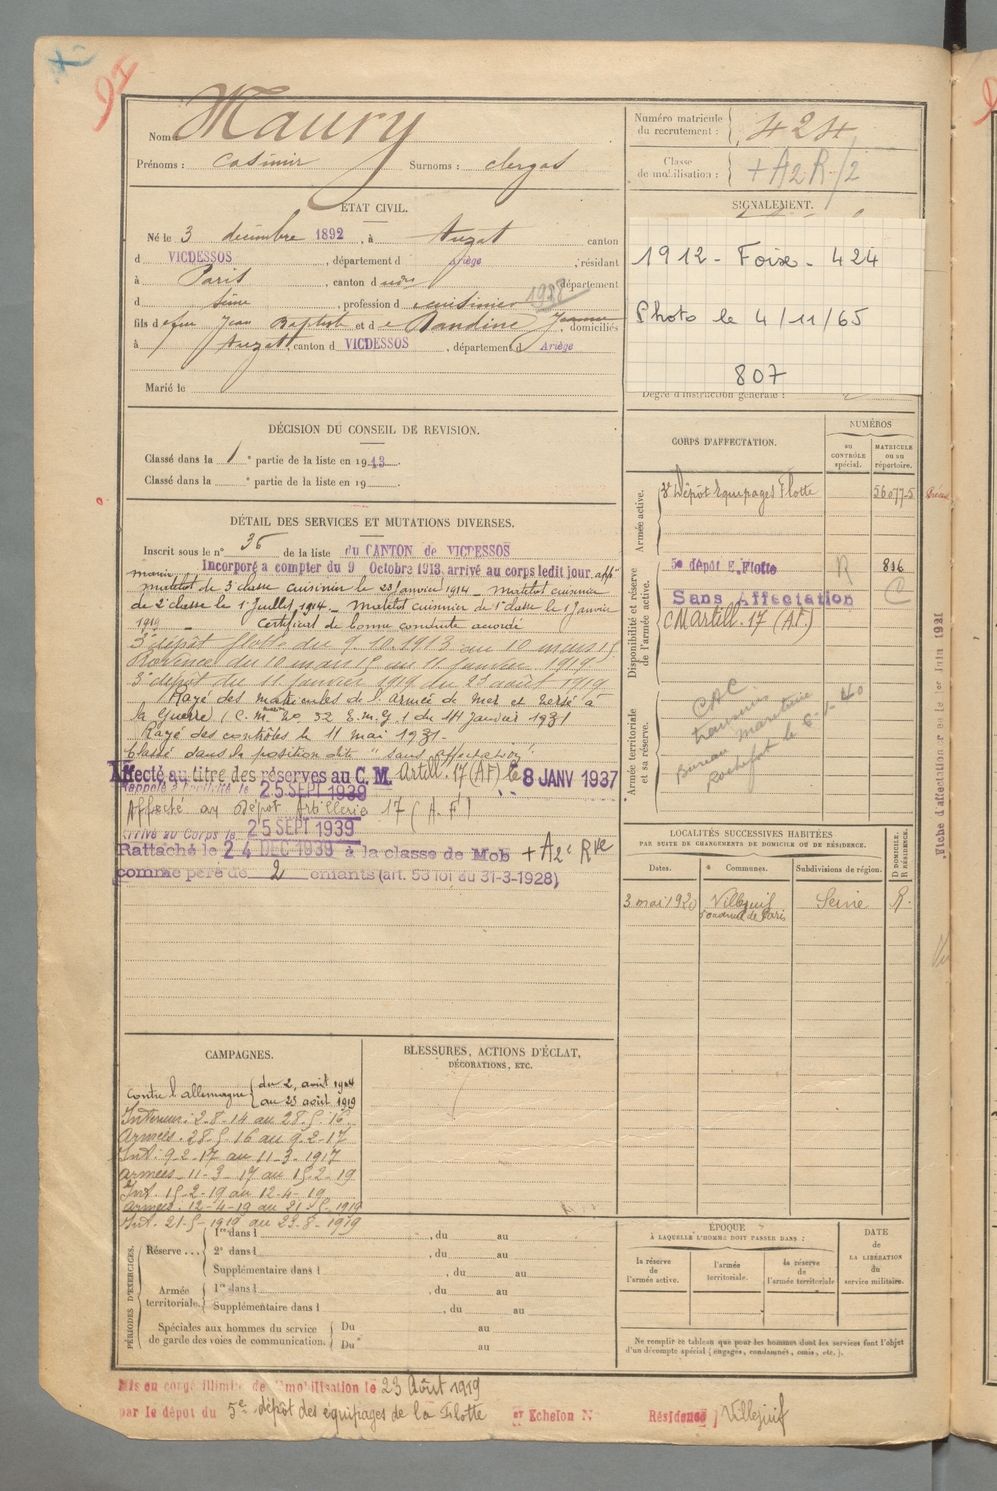 97
Nom : Maury
Prénoms : Casimir Surnoms : clergas
Numéro matricule du recrutement : 424
Classe de mobilisation : + A2R/2
ETAT CIVIL.
Né le 3 décembre 1892, à Auzat canton
d VICDESSOS, département d Ariège, résidant
à Paris, canton d udre département
d Seine, profession d cuisinier 1928
fils d efeu Jean Baptiste et d e Dandine Jeanne, domiciliés
à Auzat, canton d VICDESSOS, département d Ariège
Marié le
SIGNALEMENT.
1912 - Foix - 424
Photo le 4/11/65
807
Degré d'instruction générale :
DÉCISION DU CONSEIL DE REVISION.
Classé dans la 1e partie de la liste en 1913.
Classé dans la e partie de la liste en 19
DÉTAIL DES SERVICES ET MUTATIONS DIVERSES.
Inscrit sous le n° 36 de la liste du CANTON de VICDESSOS
Incorporé a compter du 9 Octobre 1913, arrivé au corps ledit jour, app
marin
matelot de 3e classe cuisinier le 23 Janvier 1914 _ Matelot cuisinier
de 2e classe le 1er Juillet 1914 _ Matelot cuisinier de 1e classe le 1 Janvier
1919 _ Certificat de bonne conduite accordé
3e dépôt flotte du 9.10.1913 au 10 mars 15
Provence du 10 mars 15 au 11 janvier 1919
3e dépôt du 11 janvier 1919 au 23 août 1919
Rayé des matricules de l'armée de mer et versé à
la Guerre (C.M. marine No 32 E.M.G.1 du 14 Janvier 1931
Rayé des contrôles le 11 mai 1931.
Classé dans la position dite "sans affectation"
Affecté au titre des réserves au C.M. Artill. 17 (AF) le 8 JANV 1937
Rappelé à l'activité le 25 SEPT 1939
Affecté au Dépôt Artillerie 17 (A.F)
Arrivé au Corps le 25 SEPT 1939
Rattaché le 24 DEC 1939 à la classe de Mob + A2e Rve
comme père de 2 enfants (art. 58 loi du 31-3-1928)
CORPS D'AFFECTATION.
NUMÉROS
au CONTRÔLE spécial.
MATRICULE ou au répertoire.
Armée active.
3e Dépôt Equipages Flotte 56077-5
Disponibilité et réserve de l'armée active.
5e dépôt E. Flotte R 806
Sans Affectation C
C M artill. 17 (AF)
Armée territoriale et sa réserve.
CAC
transmis
Bureau maritime
Rochefort le 6-1-40
Fiche d'affectation au 1er Juin 1921
LOCALITÉS SUCCESSIVES HABITÉES
PAR SUITE DE CHANGEMENTS DE DOMICILE OU DE RÉSIDENCE.
Dates. Communes. Subdivisions de région. D DOMICILE. R RÉSIDENCE.
3 mai 1920 Villejuif Seine R.
CAMPAGNES.
Contre l'allemagne du 2 août 1914
au 23 août 1919
Intérieur : 2-8-14 au 28.5.16
Armées : 28-5-16 au 9-2-17
Int. 9-2-17 au 11-3-1917
Armées - 11-3-17 au 15-2-19
Int. 15-2-19 au 12-4-19
Armées : 12-4-19 au 21-5-1919
Int. 21-5-1919 au 23-8-1919
BLESSURES, ACTIONS D'ÉCLAT,
DÉCORATIONS, ETC.
PÉRIODES D'EXERCICES.
Réserve ... 1re dans l , du au
2e dans l , du au
Supplémentaire dans l , du au
Armée territoriale. 1re dans l , du au
Supplémentaire dans l , du au
Spéciales aux hommes du service de garde des voies de communication. Du au
Du au
ÉPOQUE
À LAQUELLE L'HOMME DOIT PASSER DANS :
la réserve de l'armée active.
l'armée territoriale.
la réserve de l'armée territoriale
DATE de LA LIBÉRATION du service militaire.
Ne remplir ce tableau que pour les hommes dont les services font l'objet
d'un décompte spécial (engagés, condamnés, omis, etc.).
Mis en congé illimité de démobilisation le 23 Août 1919
par le dépot du 5e dépôt des équipages de la Flotte er Echelon N Résidence Villejuif